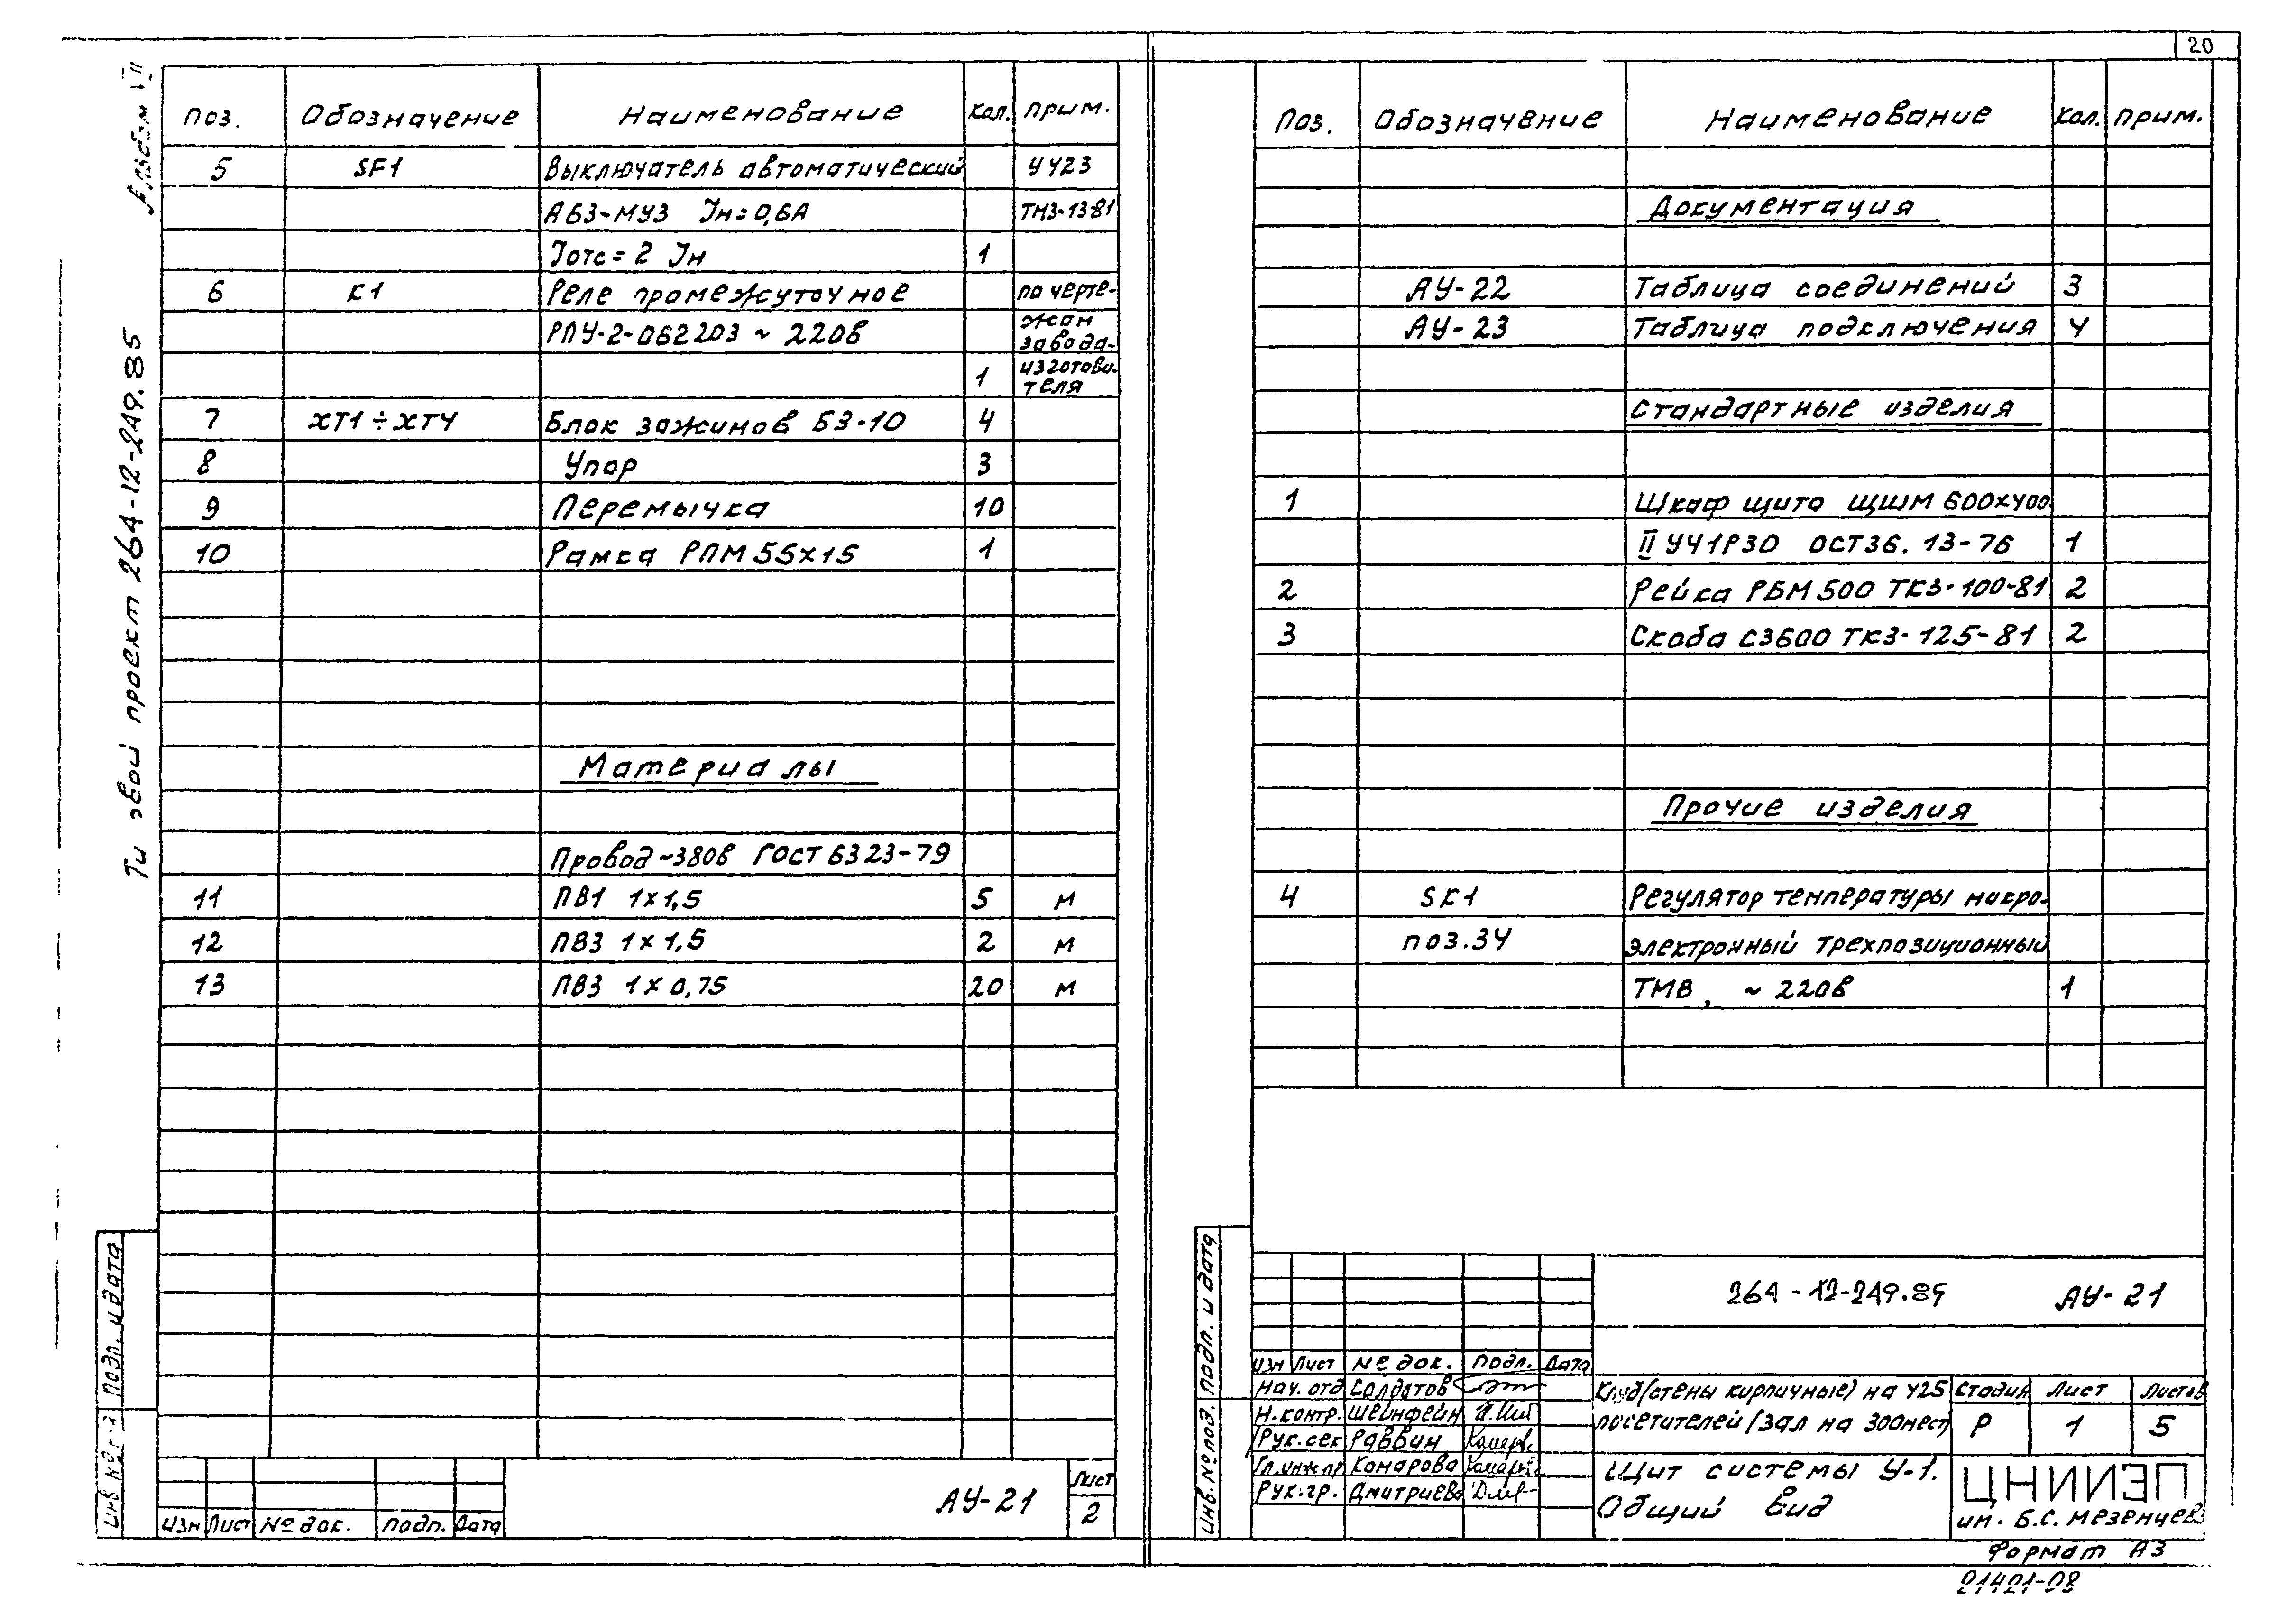 20
Альбом VII
Ти вой проект 264-12-249.85
Поз. Обозначение Наименование Кол. Прим.
5 SF1 Выключатель автоматический УЧ23
А63-МУ3 Iн=0,6А ТМ3-13-81
Iотс=2 Iн 1
6 К1 Реле промежуточное по черте-
РПУ-2-062203 ~ 220в жам завода-
1 изготови-
теля
7 ХТ1÷ХТ4 Блок зажимов БЗ-10 4
8 Упор 3
9 Перемычка 10
10 Рамка РПМ 55х15 1
Материалы
Провод ~380в ГОСТ 6323-79
11 ПВ1 1х1,5 5 м
12 ПВ3 1х1,5 2 м
13 ПВ3 1х0,75 20 м
Подп. и дата
Изм Лист № док. Подп. Дата
АУ-21
Лист
2
Поз. Обозначение Наименование Кол. Прим.
Документация
АУ-22 Таблица соединений 3
АУ-23 Таблица подключения 4
Стандартные изделия
1 Шкаф щита ЩШМ 600х400
II УЧ1Р30 ОСТ36.13-76 1
2 Рейка РБМ 500 ТК3-100-81 2
3 Скоба С3600 ТК3-125-81 2
Прочие изделия
4 SK1 Регулятор температуры микро-
поз.34 электронный трехпозиционный
ТМВ, ~ 220в 1
Инв.№под. Подп. и дата
264-12-249.85 АУ-21
Изм Лист № док. Подп. Дата
Нач. отд Солдатов
Н.контр. Шейнфейн
Рук.сек Раввин
Гл.инж.пр Комарова
Рук.гр. Дмитриева
Клуб (стены кирпичные) на 425
посетителей /зал на 300мест
Стадия Лист Листов
Р 1 5
Щит системы У-1.
Общий вид
ЦНИИЭП
им. Б.С. Мезенцева
Формат А3
21421-08